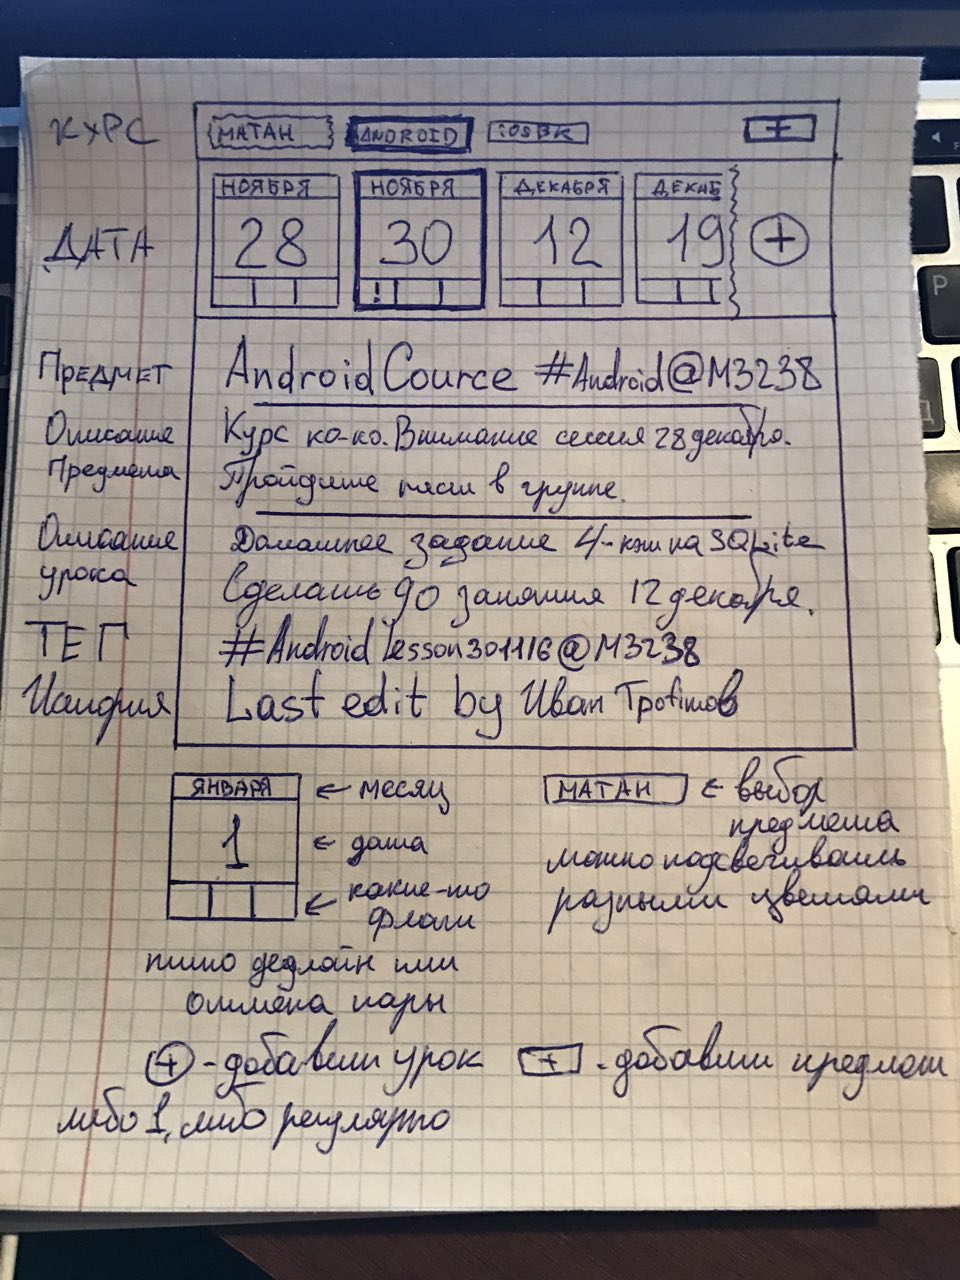 КУРС
МАТАН ANDROID iOSBK +
ДАТА
НОЯБРЯ НОЯБРЯ ДЕКАБРЯ ДЕКАБ
28 30 12 19 +
!
ПРЕДМЕТ
Android Cource #Android@M3238
Описание Предмета
Курс ко-ко. Внимание сессия 28 декабря.
Пройдите в группе.
Описание урока
Домашнее задание 4 - на SQLite
Сделать до занятия 12 декабря.
ТЕГ
#Androidlesson301116@M3238
История
Last edit by Иван Трофимов
ЯНВАРЯ ← месяц
1 ← дата
← какие-то флаги
типо дедлайн или
отмена пары
МАТАН ← выбор
предмета
можно подсвечивать
разными цветами
+ - добавить урок
либо 1, либо регулярно
+ - добавить предмет